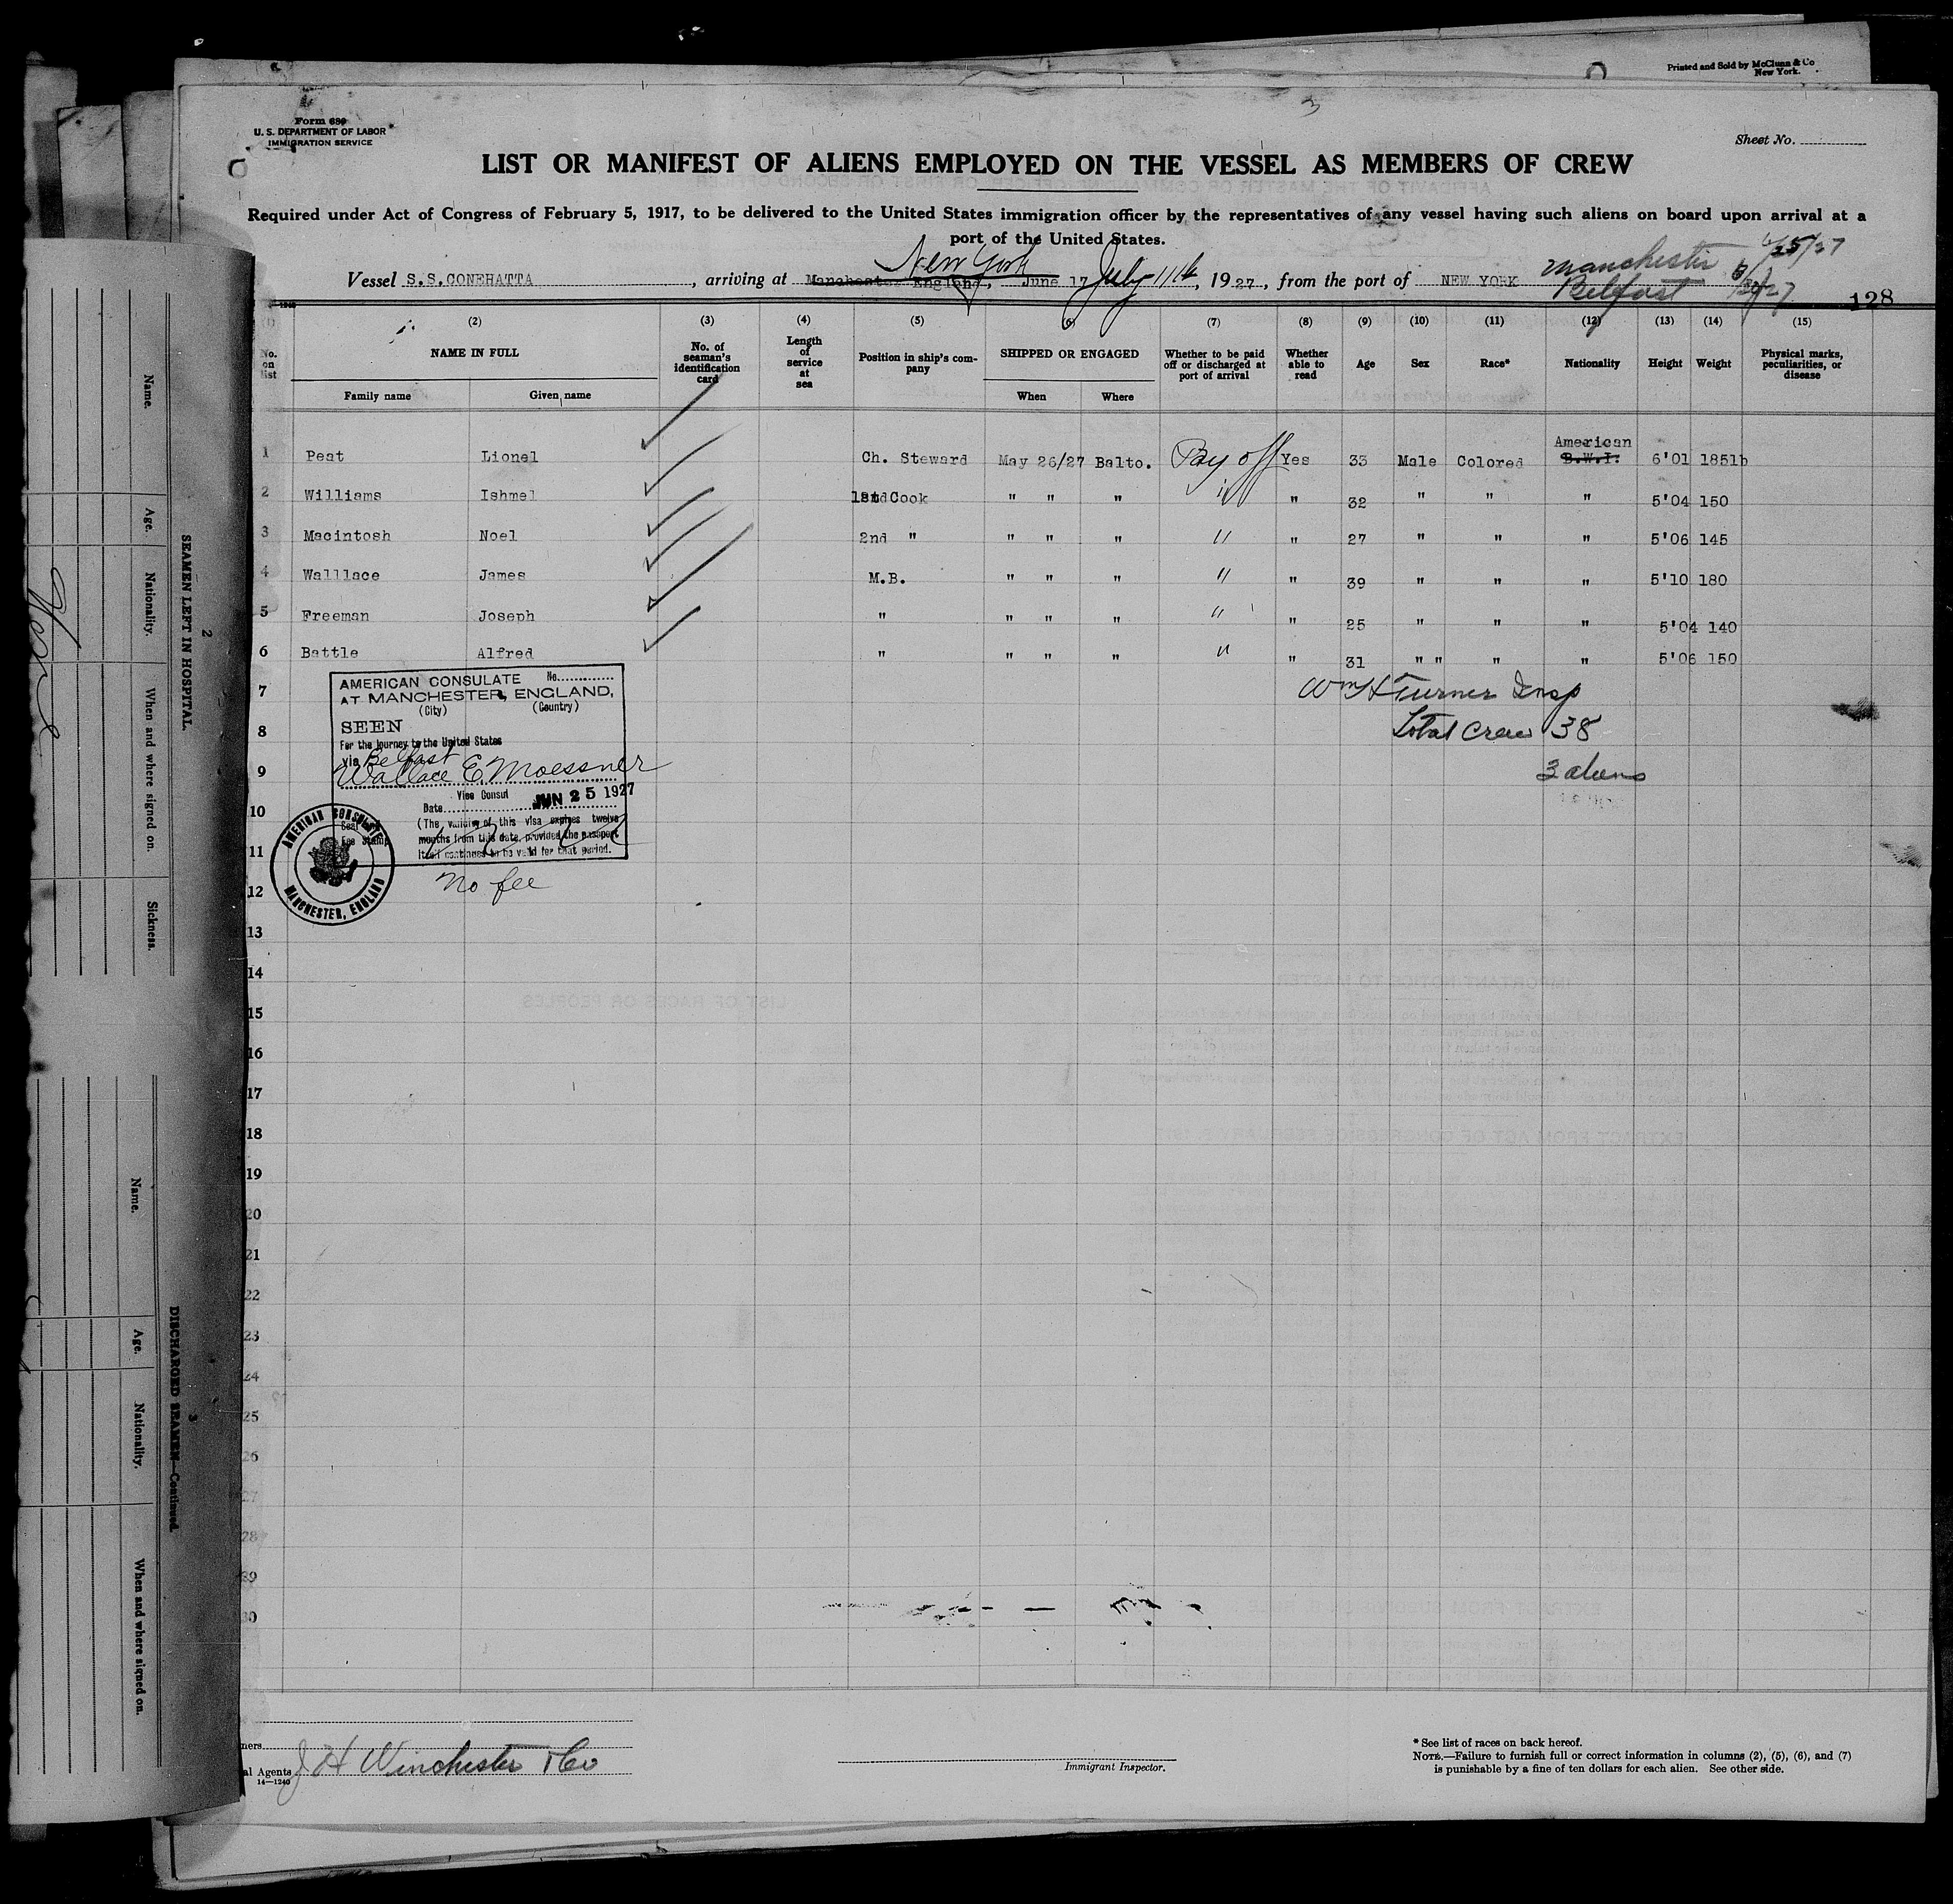 Printed and Sold by McClunn & Co
New York.
3
Form 689
U. S. DEPARTMENT OF LABOR
IMMIGRATION SERVICE
Sheet No.
LIST OR MANIFEST OF ALIENS EMPLOYED ON THE VESSEL AS MEMBERS OF CREW
Required under Act of Congress of February 5, 1917, to be delivered to the United States immigration officer by the representatives of any vessel having such aliens on board upon arrival at a
port of the United States.
New York Manchester 6/25/27
Vessel S.S.CONEHATTA, arriving at Manchester England, June 17 July 11th, 1927, from the port of NEW YORK Belfast
128
(1) (2) (3) (4) (5) (6) (7) (8) (9) (10) (11) (12) (13) (14) (15)
No. on list NAME IN FULL No. of seaman's identification card Length of service at sea Position in ship's company SHIPPED OR ENGAGED Whether to be paid off or discharged at port of arrival Whether able to read Age Sex Race* Nationality Height Weight Physical marks, peculiarities, or disease
Family name Given name When Where
American
1 Peat Lionel Ch. Steward May 26/27 Balto. Pay off Yes 33 Male Colored B.W.I. 6'01 185lb
2 Williams Ishmel 1st Cook " " " " " 32 " " " 5'04 150
3 Macintosh Noel 2nd " " " " " " 27 " " " 5'06 145
4 Walllace James M.B. " " " " " 39 " " " 5'10 180
5 Freeman Joseph " " " " " " 25 " " " 5'04 140
6 Battle Alfred " " " " " " 31 " " " " 5'06 150
7 Wm H Turner Insp
8 Total Crew 38
9 3 aliens
10
11
12
13
14
15
16
17
18
19
20
21
22
23
24
25
26
27
28
29
30
AMERICAN CONSULATE No.
AT MANCHESTER, ENGLAND,
(City) (Country)
SEEN
For the journey to the United States
via Belfast
Wallace E. Moessner
Vice Consul
Date JUN 25 1927
(The validity of this visa expires twelve
months from this date, provided the passport
itself continues to be valid for that period.
Seal
Fee Stamp
AMERICAN CONSULATE
MANCHESTER, ENGLAND
No fee
J H Winchester & Co
al Agents
14—1240
Immigrant Inspector.
* See list of races on back hereof.
NOTE.—Failure to furnish full or correct information in columns (2), (5), (6), and (7)
is punishable by a fine of ten dollars for each alien. See other side.
2
SEAMEN LEFT IN HOSPITAL.
Name. Age. Nationality. When and where signed on. Sickness.
None
3
DISCHARGED SEAMEN—Continued.
Name. Age. Nationality. When and where signed on.